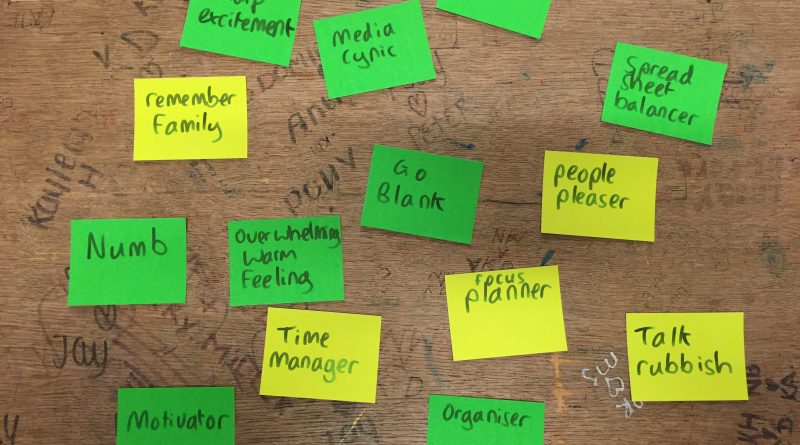 excitement
Media
Cynic
Spread
sheet
balancer
remember
Family
Go
Blank
people
pleaser
Numb
Overwhelming
Warm
Feeling
focus
planner
Time
Manager
Talk
rubbish
Motivator
Organiser
Kayleigh
H
PETER
pony
Jay